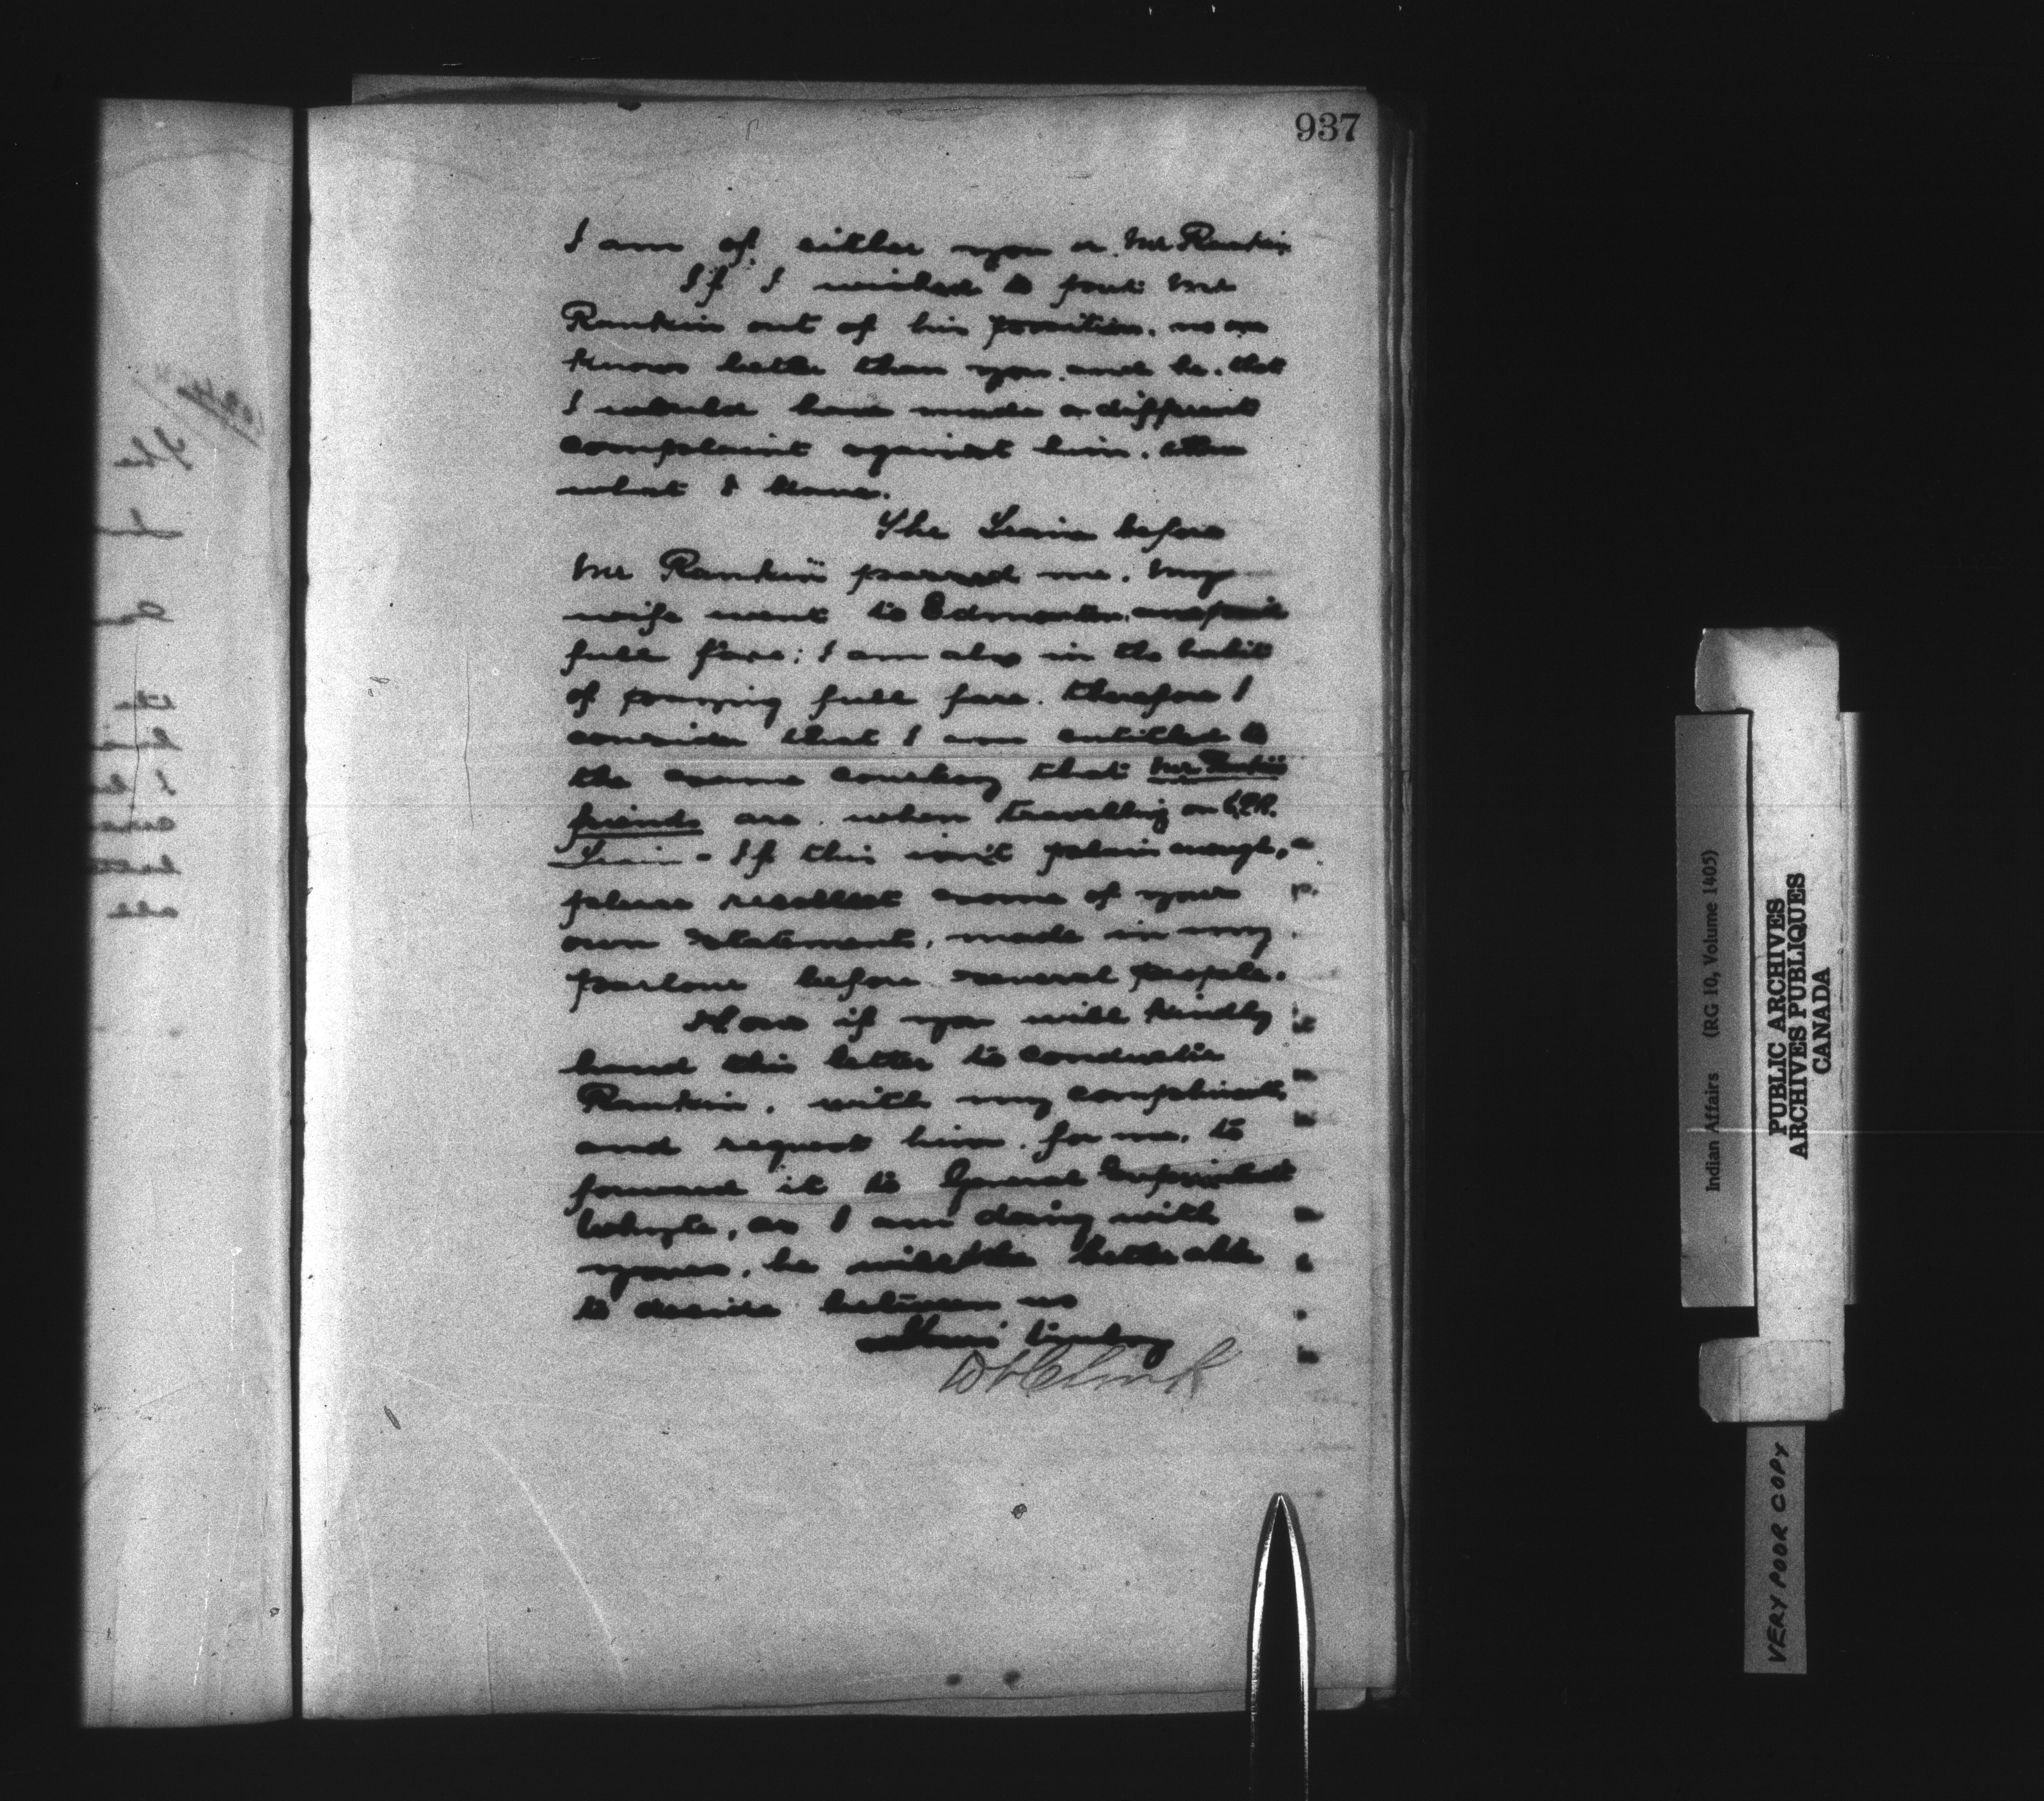 937
I am of either you or Mr Rankin
If I wished to put Mr
Rankin out of his position. no one
knows better than you and he. that
I would have made a different
complaint against him. than
what I have.
The Train before
Mr Rankin passed me. my
wife went to Edmonton. and paid
full fare; I am also in the habit
of paying full fare. therefore I
consider that I am entitled to
the same courtesy that Mr Rankin
friends are. when travelling on C.P.R.
Train - If this isn't plain enough,
please recollect some of your
own statement, made in my
parlour before several people.
Now if you will kindly
hand this letter to conductor
Rankin, with my compliments
and request him. for me, to
forward it to General Superintendent
Whyte, as I am doing with
yours, he will be better able
to decide between us
Yours Truly
PUBLIC ARCHIVES
ARCHIVES PUBLIQUES
CANADA
Indian Affairs (RG 10, Volume 1405)
VERY POOR COPY